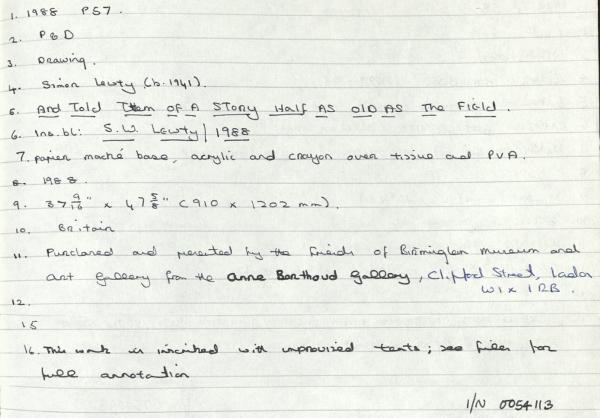 1. 1988 P57.
2. P&D
3. Drawing.
4. Simon Lewty (b.1941).
5. And Told Them OF A STORY Half AS OLD AS The FIEld.
6. Ins.bl: S.W. Lewty | 1988
7. papier maché base, acrylic and crayon over tissue and PVA.
8. 1988.
9. 37 9/16" x 47 5/8" (910 x 1202 mm).
10. Britain
11. Purchased and presented by the Friends of Birmingham museum and
art Gallery from the Anne Berthoud Gallery, Clifford Street, London
W1X 1RB.
12.
15
16. This work is inscribed with improvised texts; see files for
full annotation
I/N 0054113